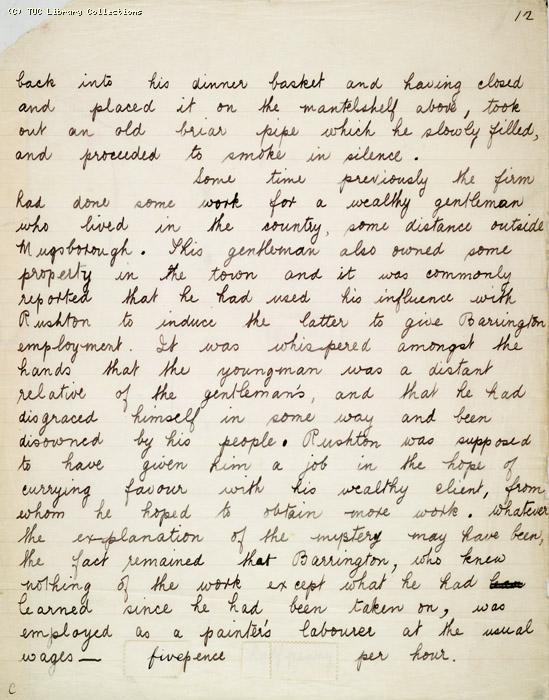 (C) TUC Library Collections
12
back into his dinner basket and having closed
and placed it on the mantelshelf above, took
out an old briar pipe which he slowly filled,
and proceeded to smoke in silence.
Some time previously the firm
had done some work for a wealthy gentleman
who lived in the country, some distance outside
Mugsborough. This gentleman also owned some
property in the town and it was commonly
reported that he had used his influence with
Rushton to induce the latter to give Barrington
employment. It was whispered amongst the
hands that the youngman was a distant
relative of the gentleman's, and that he had
disgraced himself in some way and been
disowned by his people. Rushton was supposed
to have given him a job in the hope of
currying favour with his wealthy client, from
whom he hoped to obtain more work. Whatever
the explanation of the mystery may have been,
the fact remained that Barrington, who knew
nothing of the work except what he had
learned since he had been taken on, was
employed as a painter's labourer at the usual
wages — fivepence per hour.
C